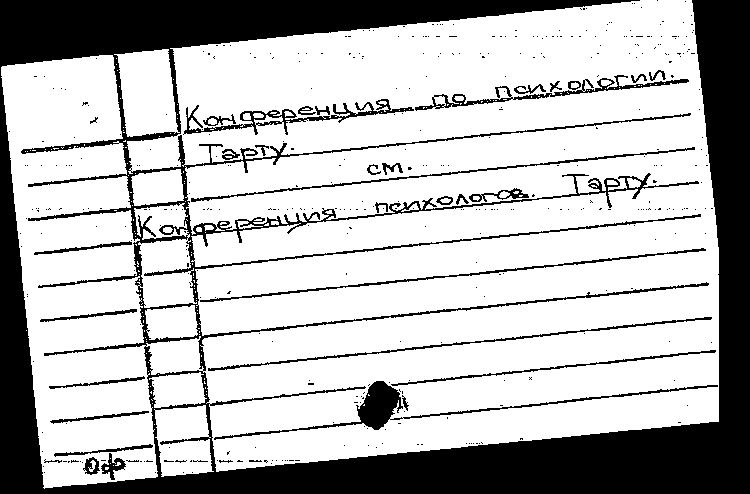 Конференция по психологии.
Тарту.
см.
Конференция психологов. Тарту.
Оф